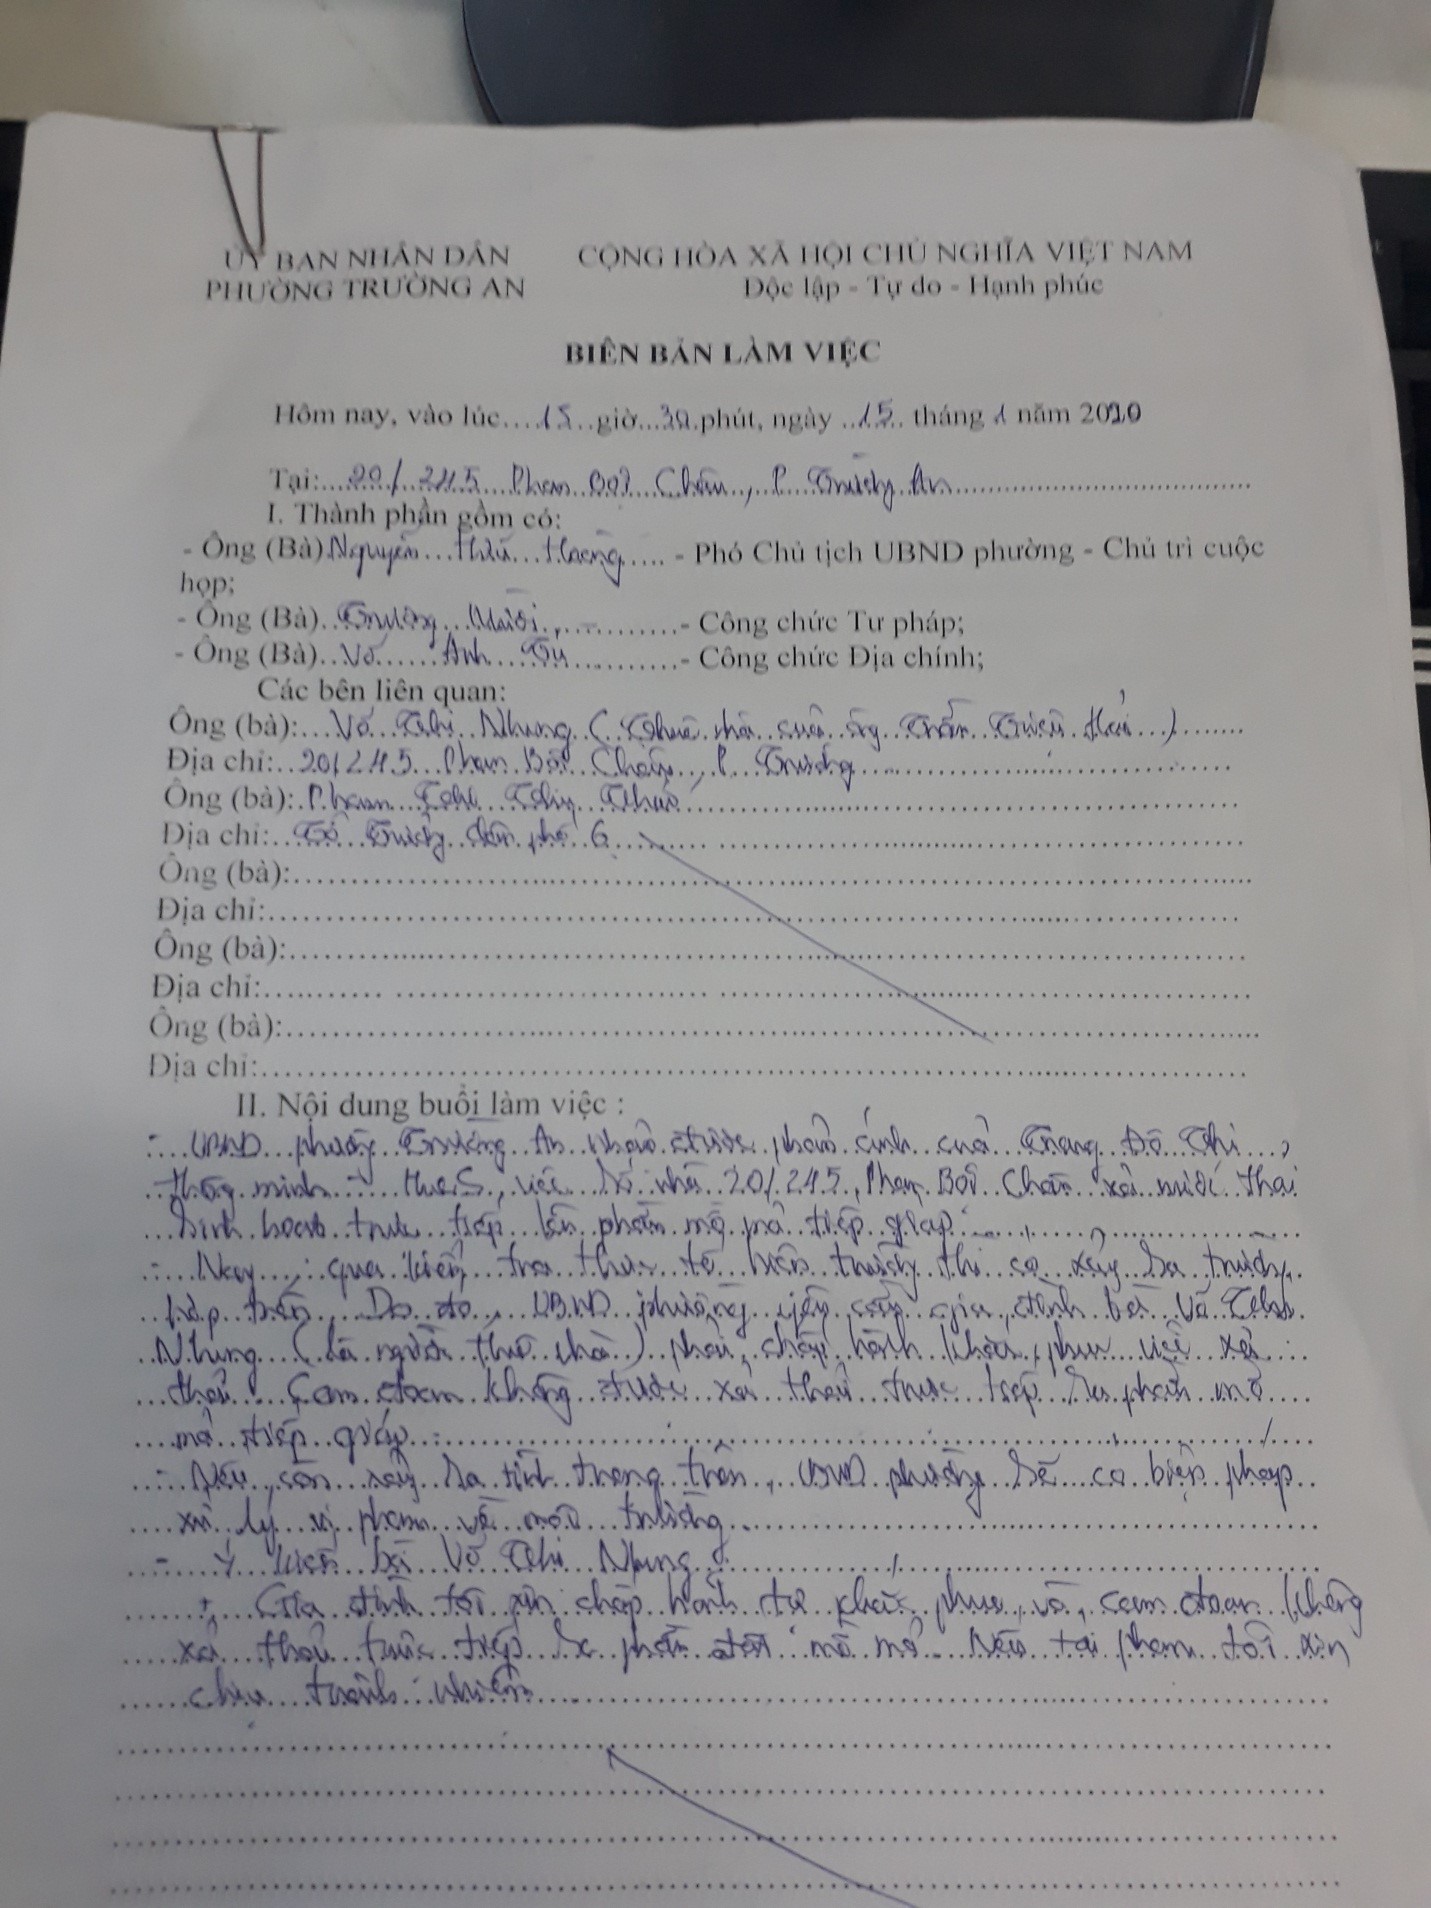 ỦY BAN NHÂN DÂN CỘNG HÒA XÃ HỘI CHỦ NGHĨA VIỆT NAM
PHƯỜNG TRƯỜNG AN Độc lập - Tự do - Hạnh phúc
BIÊN BẢN LÀM VIỆC
Hôm nay, vào lúc....15..giờ...30.phút, ngày ..15.. tháng 1 năm 2020
Tại:...20/245 Phan Bội Châu, P. Trường An
I. Thành phần gồm có:
- Ông (Bà) Nguyễn - Phó Chủ tịch UBND phường - Chủ trì cuộc
họp;
- Ông (Bà)..Trương - Công chức Tư pháp;
- Ông (Bà)..Võ Anh Tú - Công chức Địa chính;
Các bên liên quan:
Ông (bà):...Võ Thị Nhung (Thuê nhà của ông Trần
Địa chỉ:..20/245 Phan Bội Châu, P. Trường
Ông (bà):.Phạm Thị Thủy
Địa chỉ:..Tổ Trưởng dân phố 6
Ông (bà):
Địa chỉ:
Ông (bà):
Địa chỉ:
Ông (bà):
Địa chỉ:
II. Nội dung buổi làm việc :
- UBND phường Trường An nhận được phản ánh của Trung Đô Thị
thông minh - HueS, việc số nhà 20/245 Phan Bội Châu xả nước thải
sinh hoạt trực tiếp lên phần mộ mả tiếp giáp.
- Nay, qua kiểm tra thực tế hiện trường thì có xảy ra trường
hợp trên. Do đó, UBND phường yêu cầu gia đình bà Võ Thị
Nhung (là người thuê nhà) phải chấp hành khắc phục việc xả
thải. Cam đoan không được xả thải trực tiếp ra phần mồ
mả tiếp giáp.
- Nếu còn xảy ra tình trạng trên, UBND phường sẽ có biện pháp
xử lý vi phạm về môi trường.
- Ý kiến bà Võ Thị Nhung
+ Gia đình tôi xin chấp hành tự khắc phục và cam đoan không
xả thải trực tiếp ra phần đất mồ mả. Nếu tái phạm tôi xin
chịu trách nhiệm